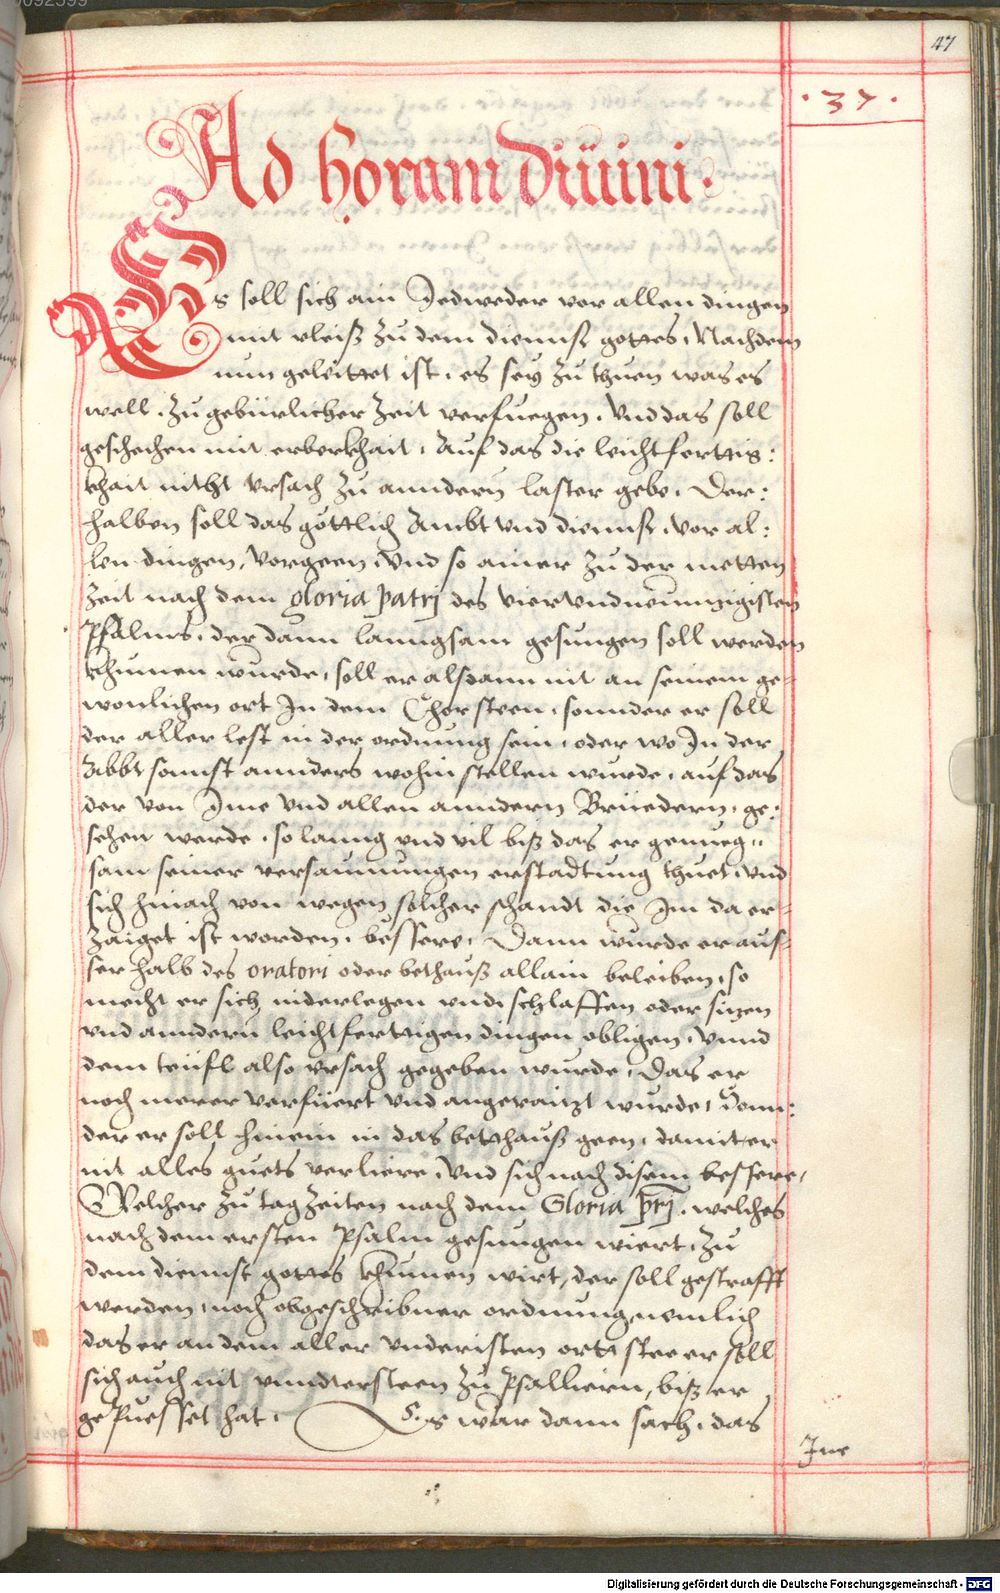 47
· 37 ·
Ad horam diuini.
Es soll sich ain Jedweder vor allen dingen
mit vleiß zu dem dienst gottes, Nachdem
nun geleittet ist, es sey zu thuen was es
well, zu gebürlicher zeit verfuegen, Vnd das soll
geschechen mit erberkhait, Auf das die leichtfertig:
khait nitht vrsach zu anndern laster gebe, Der:
halben soll das göttlich Ambt vnd dienst, vor al:
len dingen, vorgeen, Vnd so ainer zu der metten
zeit nach dem gloria patrj des vierundneunzigisten
Psalms, der dann lanngsam gesungen soll werden
khumen wurde, soll er alsdann nit an seinem ge-
wonlichen ort In dem Chor steen, sonnder er soll
der aller lest in der ordnung sein, oder wo In der
Abbt sonnst annders wohin stellen wurde, auf das
der von Ime vnd allen anndern Brüedern, ge:
sehen werde, so lanng vnd vil biß das er genueg=
sam seiner versaumungen erstadtung thuet, vnd
sich hinach von wegen solcher schandt die Im da er-
zaiget ist worden, bessere, Dann wurde er aus-
serhalb des oratori oder bethauß allain beleiben, so
mecht er sich niderlegen vnd schlaffen oder sizen
vnd anndern leichtferttigen dingen obligen, Vnnd
dem teüfl also vrsach gegeben wurde, Das er
noch merer verfüert vnd angeraizt wurde, Sonn:
der er soll hinein in das betthauß geen, damit er
nit alles guets verliere, Vnd sich nach disem bessere,
Welcher zu tag zeiten nach dem Gloria prj, welches
nach dem ersten Psalm gesungen wiert, zu
dem dienst gottes khumen wirt, der soll gestrafft
werden, noch obgeschribner ordnung nemlich
das er an dem aller vnderisten ortt stee er soll
sich auch nit vnndtersteen zu Psalliern, biß er
gepuesset hat, Es war dann sach, das
Ine
Digitalisierung gefördert durch die Deutsche Forschungsgemeinschaft - DFG